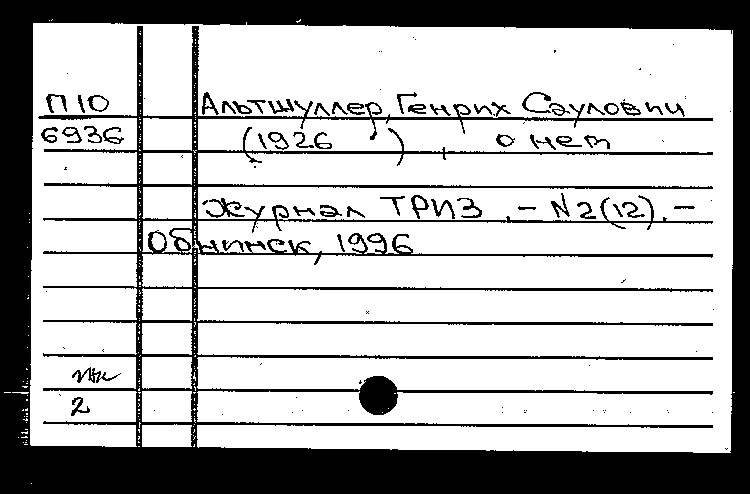 П10 Альтшуллер, Генрих Саулович
6936 (1926 ) , о нем
Журнал ТРИЗ. – N2(12). –
Обнинск, 1996
2